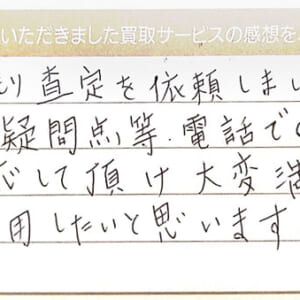 いただきました買取サービスの感想を
り査定を依頼しまし
疑問点等、電話での
応して頂け大変満
用したいと思います